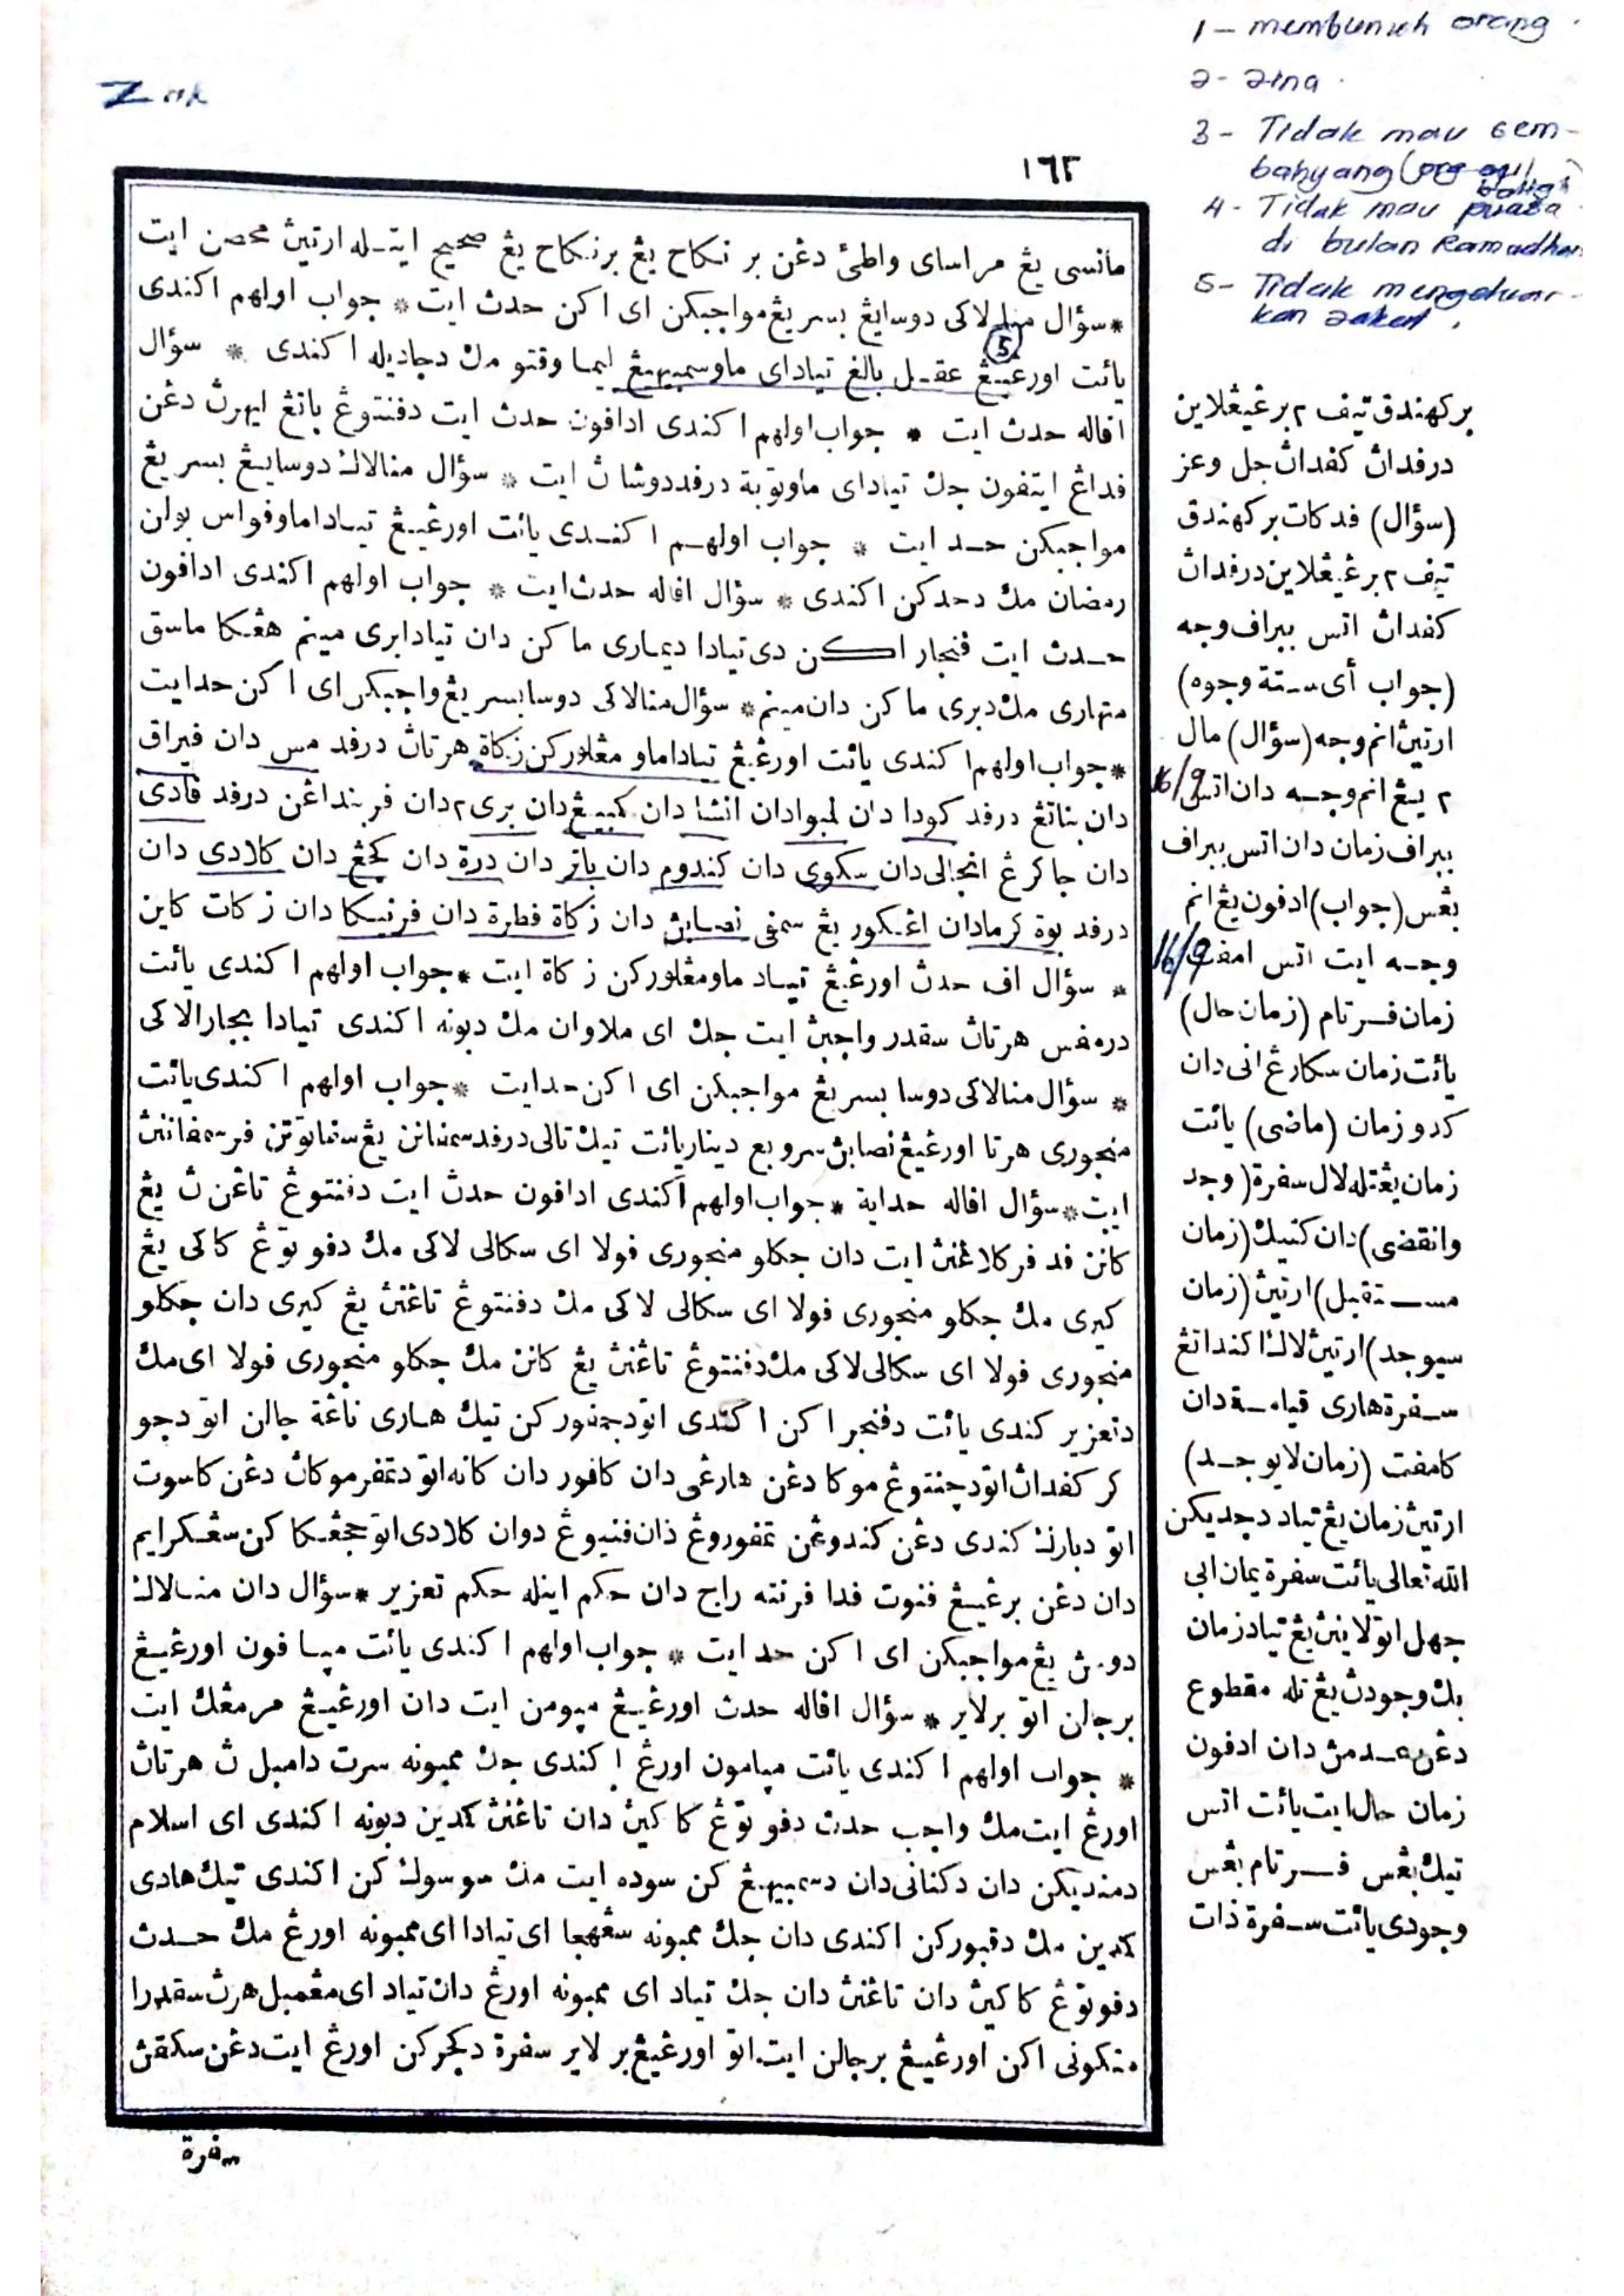 1 - membunuh orang
2 - zina
3 - Tidak mau sem-
bahyang (org aqil
balig)
4 - Tidak mau puasa
di bulan Ramadhan
5 - Tidak mengeluar-
kan zakat
١٦٢
مانسي يڠ مراساي واطئ دڠن بر نكاح يڠ برنكاح يڠ صحيح ايتـله ارتيڽ محصن ايت
* سؤال منالاكي دوسايڠ بسر يڠ مواجبكن اي اكن حدث ايت * جواب اولهم اكندي
5
يائت اورڠيڠ عقـل بالغ تياداي ماوسمبهيڠ ليما وقتو مك دجاديله اكندي * سؤال
افاله حدث ايت * جواب اولهم اكندي ادافون حدث ايت دفنتوڠ باتڠ ليهرڽ دڠن
فداڠ ايتفون جك تياداي ماوتوبة درفددوشاڽ ايت * سؤال منالاك دوسايڠ بسر يڠ
مواجبكن حـد ايت * جواب اولهـم اكنـدي يائت اورڠيـڠ تيـاداماوفواس بولن
رمضان مك دحدكن اكندي * سؤال افاله حدث ايت * جواب اولهم اكندي ادافون
حـدث ايت فنجار اكن دي تيادا ديماري ماكن دان تيادابري مينم هڠكا ماسق
متهاري مك دبري ماكن دان مينم * سؤال منالاكي دوسابسر يڠ واجبكن اي اكن حدايت
* جواب اولهم اكندي يائت اورڠيڠ تياداماو مڠلوركن زكاة هرتاڽ درفد مس دان فيراق
دان بناتڠ درفد كودا دان لمبوادان انتتا دان كمبيڠ دان بري٢ دان فربنداڠن درفد فادي
دان جاكرڠ انجالي دان سكوي دان كندوم دان باتر دان درة دان كچڠ دان كلادي دان
درفد بوة كرمادان اڠـكور يڠ سمفي نصابڽ دان زكاة فطرة دان فرنيكا دان زكات كاين
* سؤال اف حدث اورڠيڠ تيـاد ماومڠلوركن زكاة ايت * جواب اولهم اكندي يائت
درمفس هرتاڽ سقدر واجبڽ ايت جك اي ملاوان مك دبونه اكندي تيادا بچارالاكي
* سؤال منالاكي دوسا بسر يڠ مواجبكن اي اكن حدايت * جواب اولهم اكندي يائت
منچوري هرتا اورڠيڠ نصابڽ سروبع ديناريائت تيك تالي درفد سمفانن يڠ ستابوتن فرسمفاننڽ
ايت * سؤال افاله حداية * جواب اولهم اكندي ادافون حدث ايت دفنتوڠ تاڠن ڽ يڠ
كانن فد فركلاڠنڽ ايت دان جكلو منچوري فولا اي سكالي لاكي مك دفوتوڠ كاكي يڠ
كيري مك جكلو منچوري فولا اي سكالي لاكي مك دفنتوڠ تاڠنڽ يڠ كيري دان جكلو
منچوري فولا اي سكالي لاكي مك دفنتوڠ تاڠنڽ يڠ كانن مك جكلو منچوري فولا اي مك
دتعزير كندي يائت دفنجر اكن اكندي اتودجمفوركن تيك هـاري تاڠة جالن اتو دچو
كر كفداڽ اتودچنتوڠ موكا دڠن هارڠي دان كافور دان كانه اتو دتمفر موكاڽ دڠن كاسوت
اتو دبارك كندي دڠن كندوڠن تمفوروڠ دان فنيوڠ دوان كلادي اتو ججڠـكا كن سڠـكرايم
دان دڠن برڠيـڠ فنوت فدا فرنته راج دان حكم اينله حكم تعزير * سؤال دان منـالاك
دوس يڠ مواجبكن اي اكن حد ايت * جواب اولهم اكندي يائت ميا فون اورڠيـڠ
برجالن اتو برلاير * سؤال افاله حدث اورڠيـڠ ميومن ايت دان اورڠيـڠ مرمڠك ايت
* جواب اولهم اكندي يائت ميامون اورڠ اكندي جك ممبونه سرت دامبل ڽ هرتاڽ
اورڠ ايت مك واجب حدث دفوتوڠ كاكيڽ دان تاڠنڽ كمدين دبونه اكندي اي اسلام
دمنديكن دان دكفاني دان دسمبهيڠ كن سوده ايت مك سوسوك كن اكندي تيك هادي
كمدين مك دقبوركن اكندي دان جك ممبونه سڠهجا اي تيادا اي ممبونه اورڠ مك حـدث
دفوتوڠ كاكيڽ دان تاڠنڽ دان جك تياد اي ممبونه اورڠ دان تياد اي مڠمبل هرتڽ سقدرا
متكوني اكن اورڠيـڠ برجالن ايت اتو اورڠيڠ بر لاير سفرة دكجركن اورڠ ايت دڠن سكقڽ
سفرة
بركهندق تيف ٢ برڠيڠلاين
درفداڽ كفداڽ جل وعز
(سؤال) فدكات بركهندق
تيف ٢ برڠيڠلاين درفداڽ
كفداڽ اتس ببراف وجه
(جواب أي سـتة وجوه)
ارتيڽ انم وجه (سؤال) مال
٢ يـڠ انم وجـه دان اتس 16/9
ببراف زمان دان اتس ببراف
بڠس (جواب) ادفون يڠ انم
وجـه ايت اتس امفت 16/9
زمان فـرتام (زمان حال)
يائت زمان سكارڠ اني دان
كدو زمان (ماضي) يائت
زمان يڠتله لال سفرة (وجد
وانقضى) دان كتيك (زمان
مسـتقبل) ارتيڽ (زمان
سيوجد) ارتيڽ لاك اكنداتڠ
سـفرة هاري قيامـة دان
كامفت (زمان لايوجـد)
ارتيڽ زمان يڠ تياد دجديكن
الله تعالى يائت سفرة يمان ابي
جهل اتولاينڽ يڠ تيادزمان
بك وجودڽ يڠ تله مقطوع
دڠن عـدمڽ دان ادفون
زمان حال ايت يائت اتس
تيك بڠس فـرتام بڠس
وجودي يائت سـفرة ذات